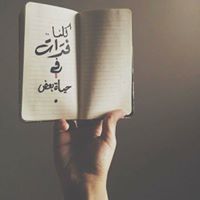 كلنا
فترات
في
حياة بعض